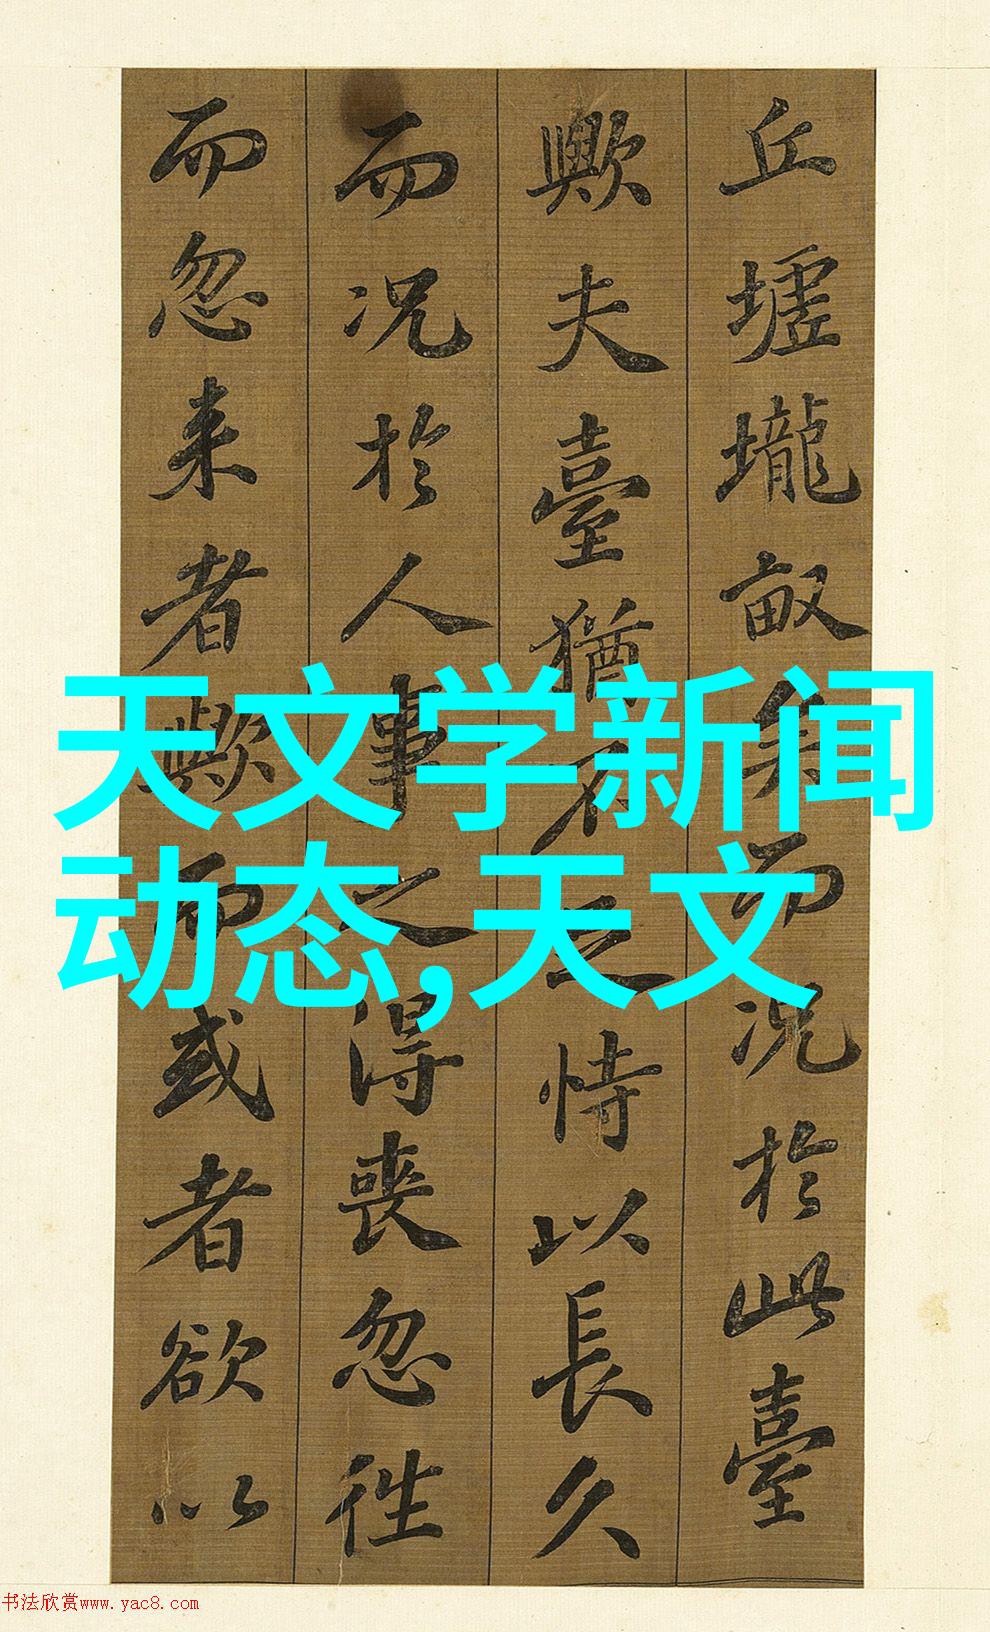 丘墟壠畝矣而况於此臺
歟夫臺猶不足恃以長久
而况於人事之得喪忽往
而忽来者歟而或者欲以
天文学新闻
动态,天文
书法欣赏www.yac8.com